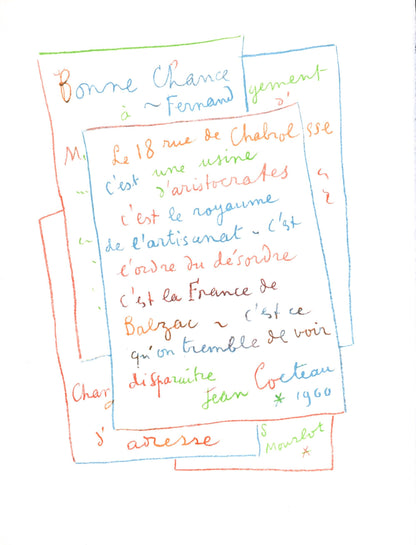 Bonne Chance
à ~ Fernand
gement
d'
M.
sse
Le 18 rue de Chabrol
c'est une usine
d'aristocrates
c'est le royaume
de l'artisanat ~ c'est
l'ordre du désordre
c'est la France de
Balzac ~ c'est ce
qu'on tremble de voir
disparaître
Jean Cocteau
* 1960
Chan
d'adresse
S
Mourlot
*